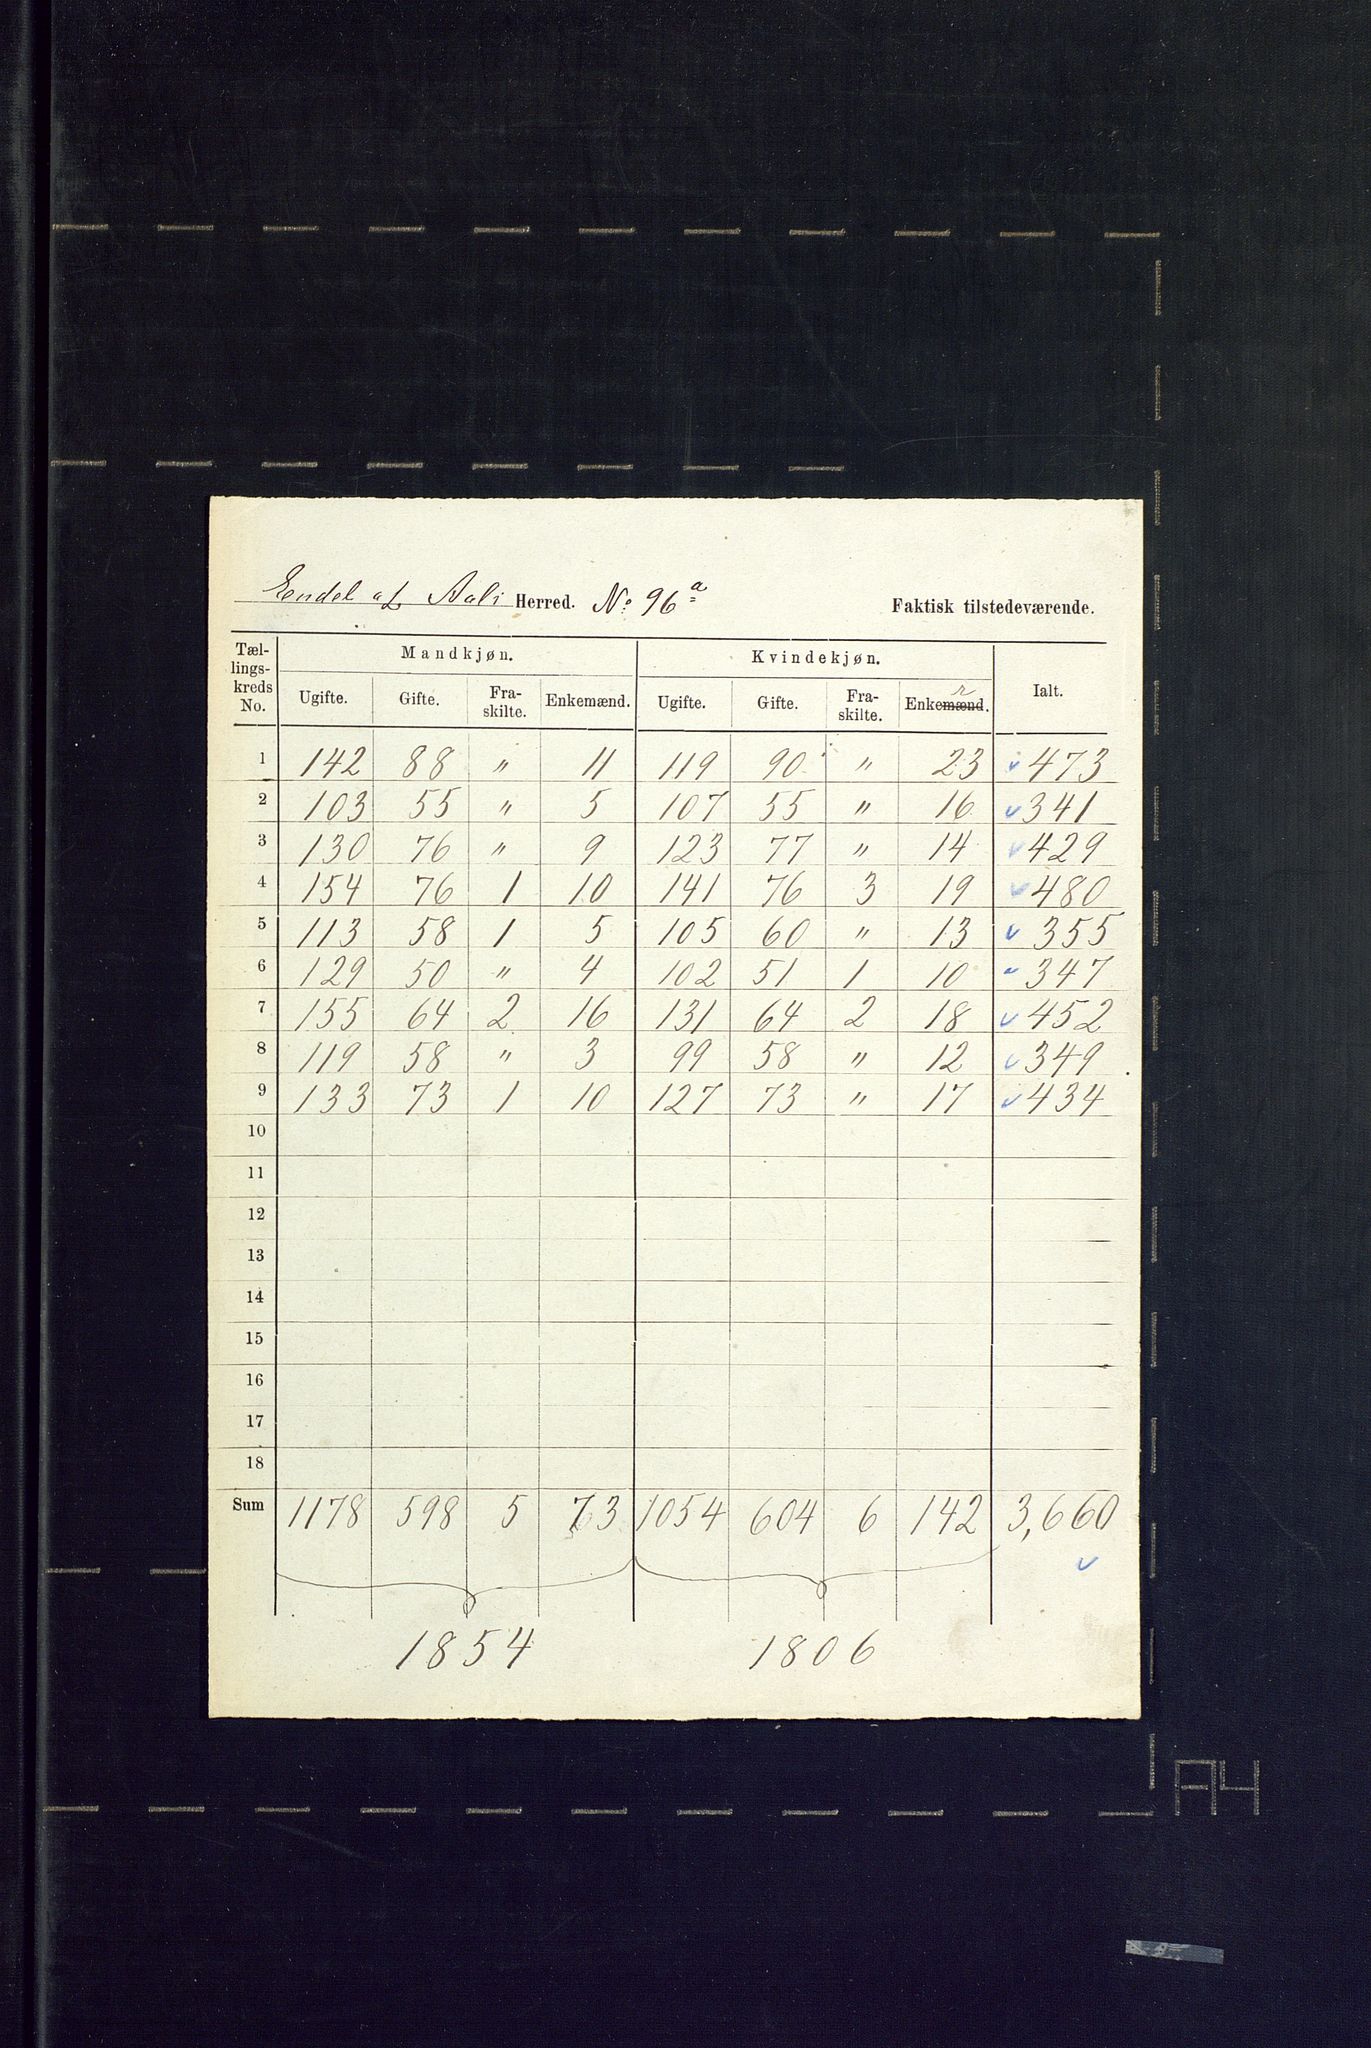 Endel af Aals Herred. No: 96 a
Faktisk tilstedeværende.
Tællingskreds No. Mandkjøn. Kvindekjøn. Ialt.
Ugifte. Gifte. Fraskilte. Enkemænd. Ugifte. Gifte. Fraskilte. Enkemænd. r
1 142 88 " 11 119 90 " 23 473
2 103 55 " 5 107 55 " 16 341
3 130 76 " 9 123 77 " 14 429
4 154 76 1 10 141 76 3 19 480
5 113 58 1 5 105 60 " 13 355
6 129 50 " 4 102 51 1 10 347
7 155 64 2 16 131 64 2 18 452
8 119 58 " 3 99 58 " 12 349
9 133 73 1 10 127 73 " 17 434
10
11
12
13
14
15
16
17
18
Sum 1178 598 5 73 1054 604 6 142 3,660
1854 1806
A4